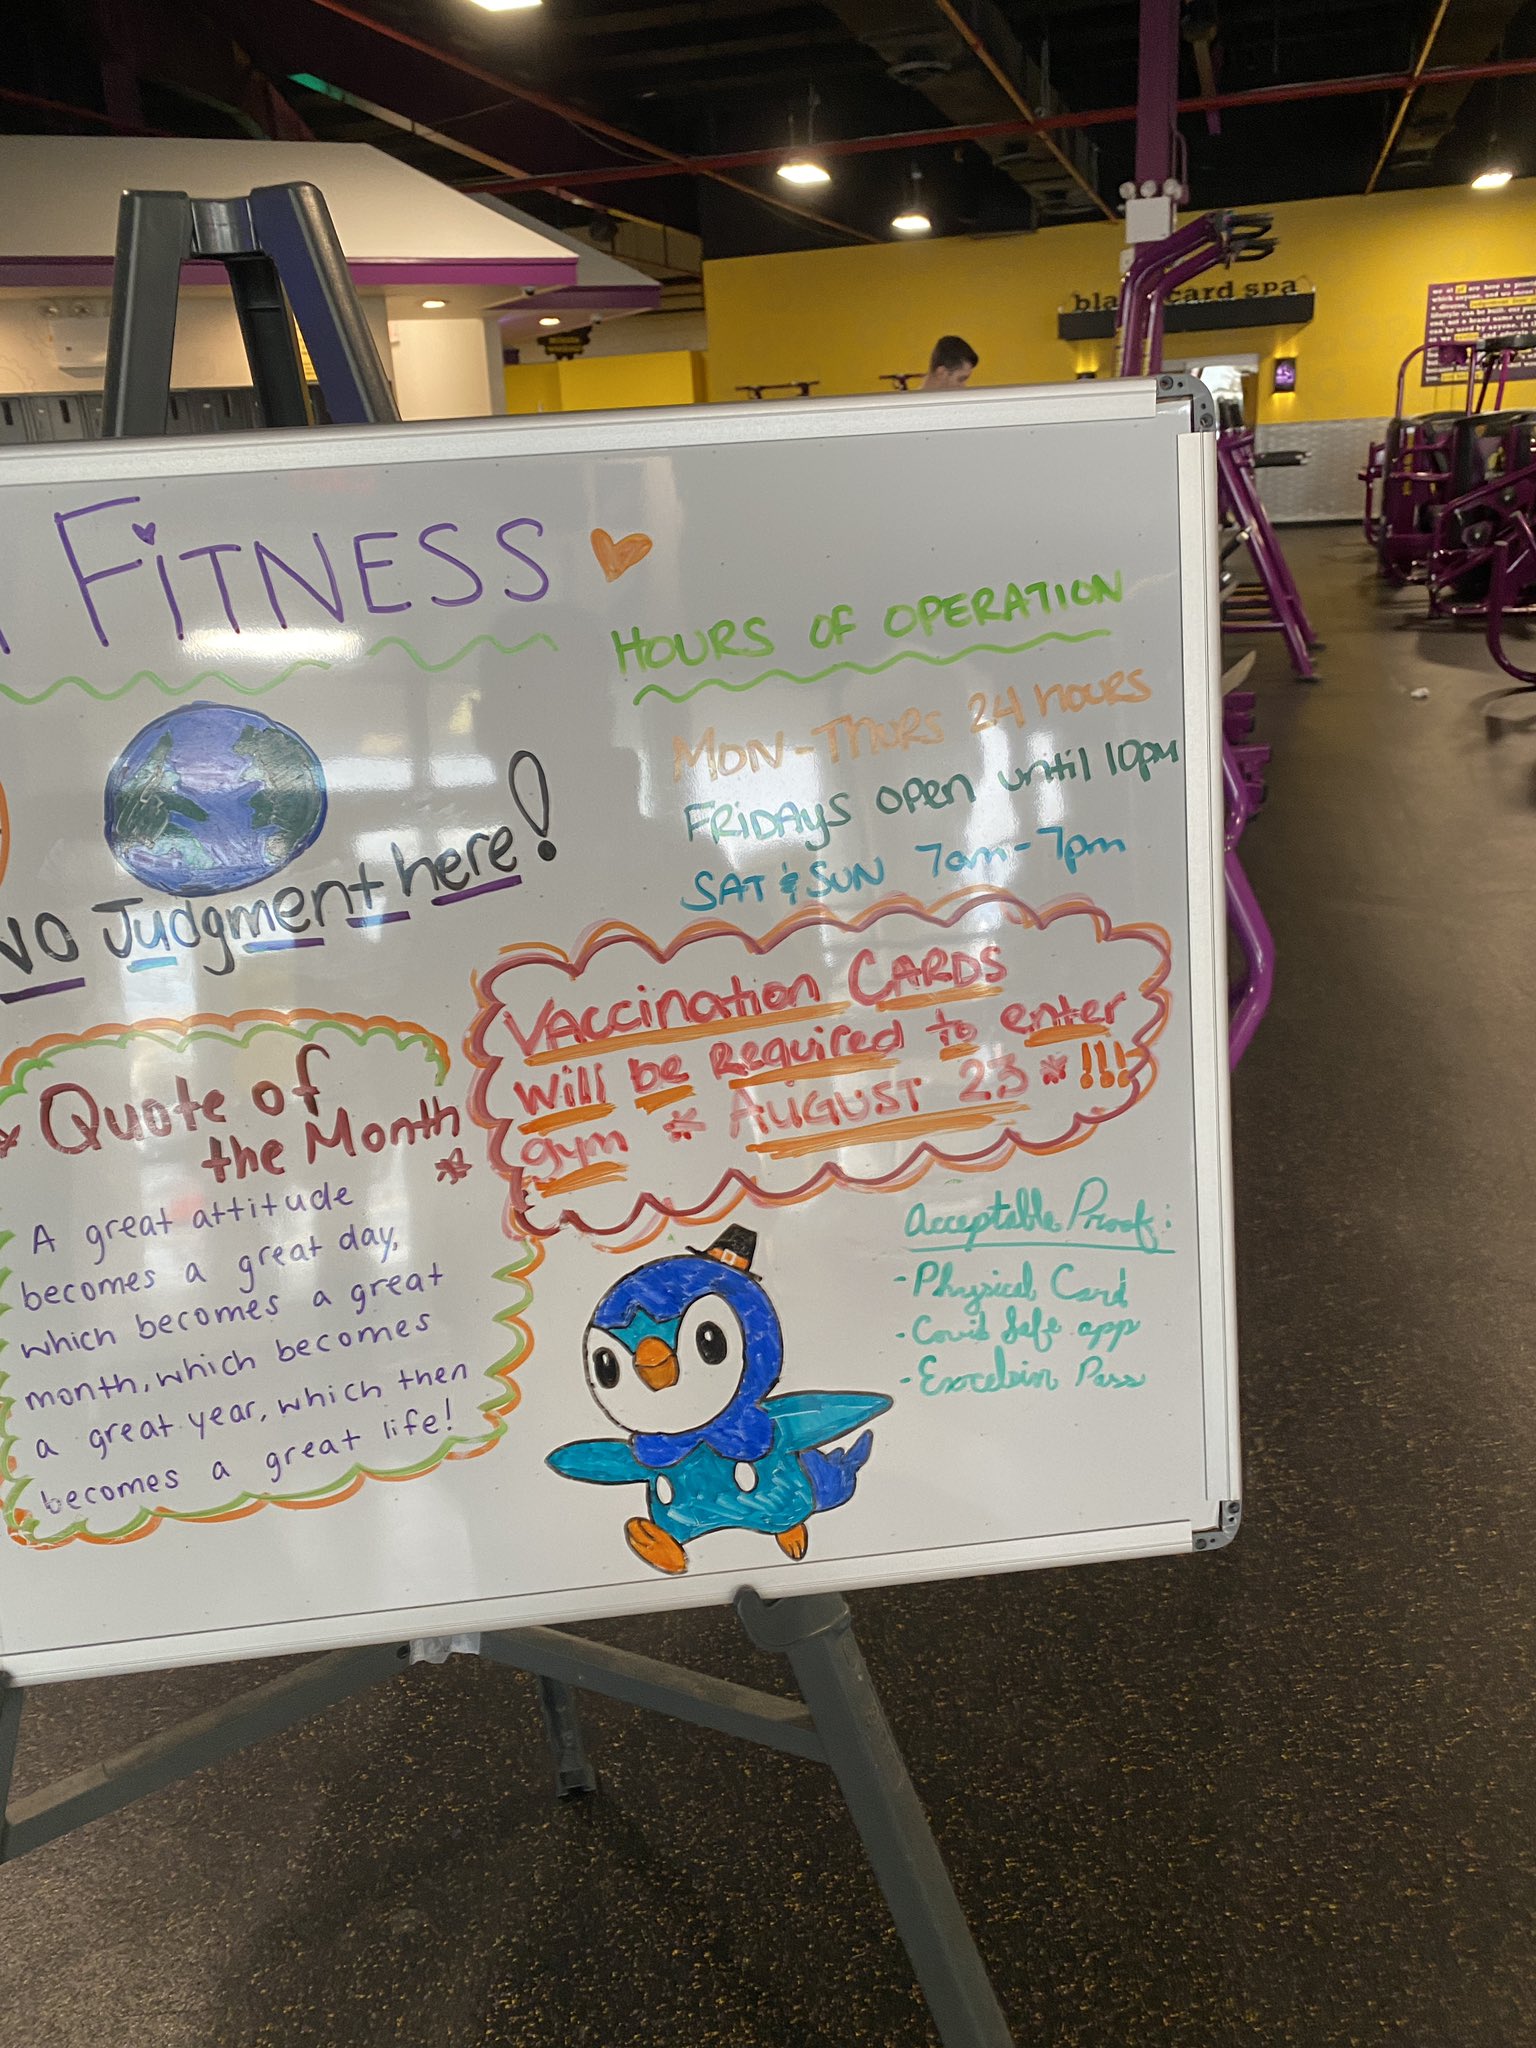 FiTNESS
HOURS OF OPERATION
MON-THURS 24 hours
FRIDAYS open until 10pm
SAT & SUN 7am-7pm
NO Judgment here!
VACCinATion CARDS
will be Required to enter
gym * AUGUST 23 * !!!
Quote of
the Month
A great attitude
becomes a great day,
which becomes a great
month, which becomes
a great year, which then
becomes a great life!
Acceptable Proof:
- Physical Card
- Covid Safe app
- Excelsior Pass
card spa